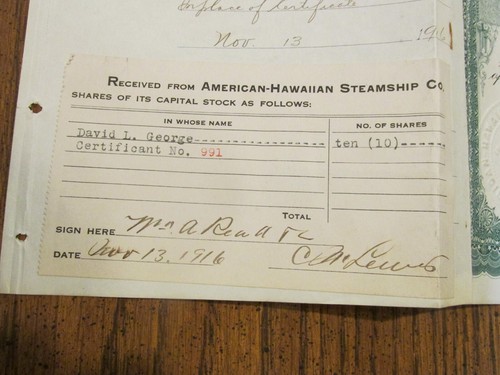 In place of Certificate
Nov. 13 1916
RECEIVED FROM AMERICAN-HAWAIIAN STEAMSHIP CO.
SHARES OF ITS CAPITAL STOCK AS FOLLOWS:
IN WHOSE NAME NO. OF SHARES
David L. George-------------------- ten (10)------
Certificant No. 991
TOTAL
SIGN HERE Wm A Read &
DATE Nov 13. 1916 Lewis